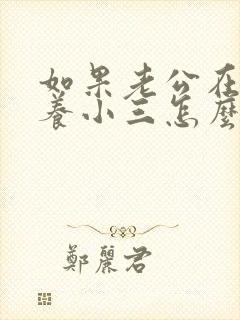 如果老公在
養小三怎麼
鄭麗君